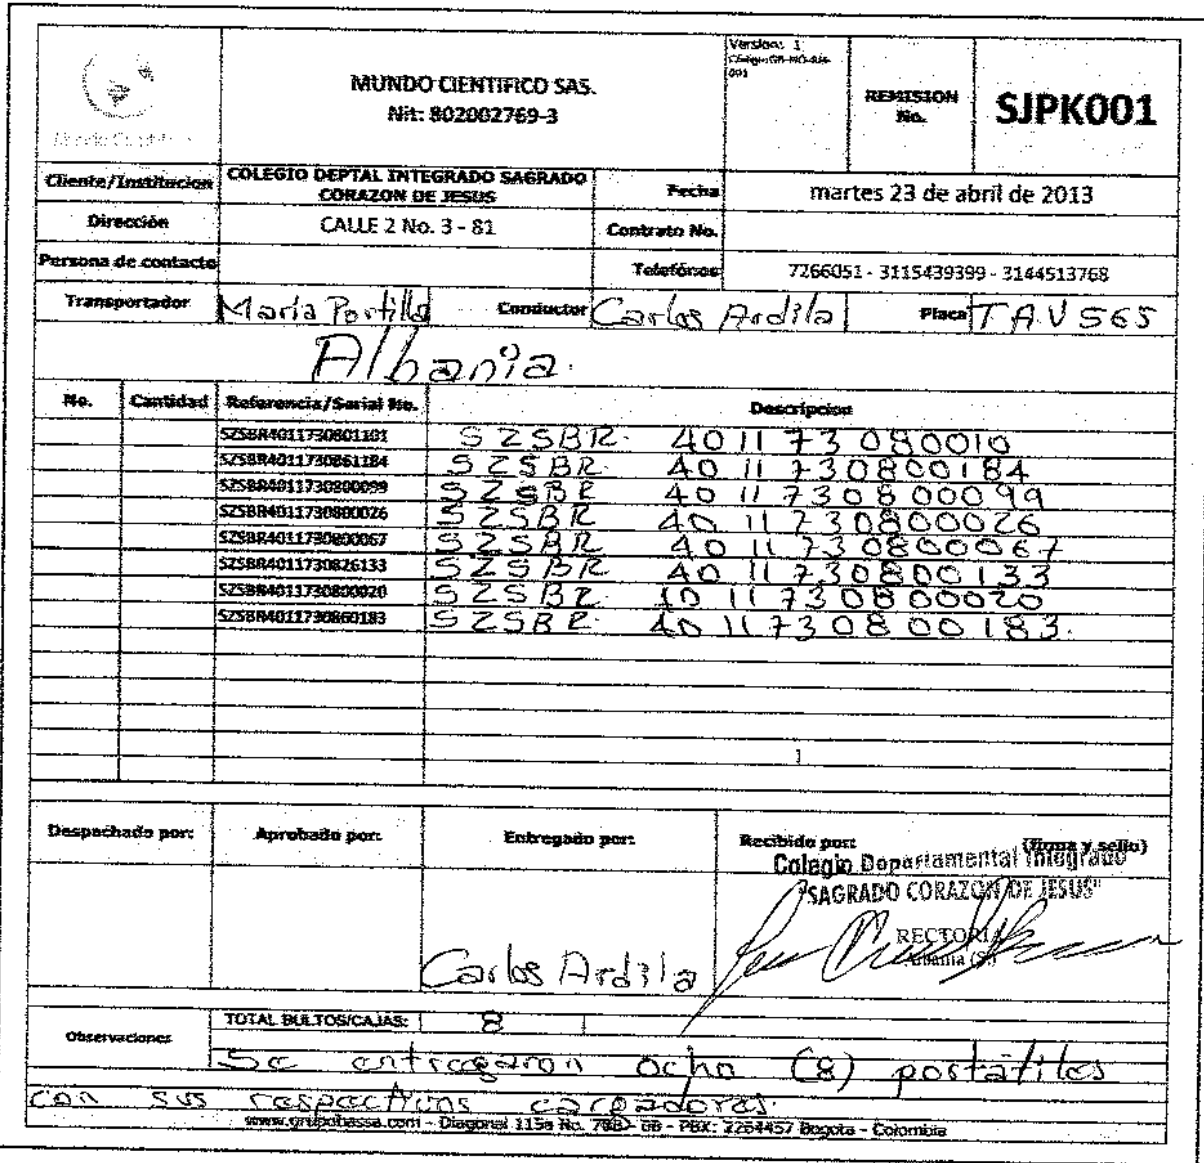 Mundo Cientifico
MUNDO CIENTIFICO SAS.
Nit: 802002769-3
Version: 1
001
REMISION
No.
SJPK001
Cliente/Institucion
COLEGIO DEPTAL INTEGRADO SAGRADO
CORAZON DE JESUS
Fecha
martes 23 de abril de 2013
Dirección
CALLE 2 No. 3 - 81
Contrato No.
Persona de contacto
Teléfonos
7266051 - 3115439399 - 3144513768
Transportador
Maria Portilla
Conductor
Carlos Ardila
Placa
TAV565
Albania.
No. Cantidad Referencia/Serial No. Descripcion
SZSBR4011730801101 SZSBR. 401173080010
SZSBR4011730861184 SZSBR. 4011730800184
SZSBR4011730800099 SZSBR 4011730800099
SZSBR4011730800026 SZSBR 4011730800026
SZSBR4011730800067 SZSBR 4011730800067
SZSBR4011730826133 SZSBR 4011730800133
SZSBR4011730800020 SZSBR. 4011730800020
SZSBR4011730860183 SZSBR. 4011730800183.
Despachado por: Aprobado por: Entregado por: Recibido por: (firma y sello)
Colegio Departamental Integrado
"SAGRADO CORAZON DE JESUS"
RECTORIA
Albania (S.)
Carlos Ardila
Observaciones
TOTAL BULTOS/CAJAS: 8
Se entregaron ocho (8) portátiles
con sus respectivos cargadores.
www.grupobassa.com - Diagonal 115a No. 70B - 68 - PBX: 2264457 Bogota - Colombia